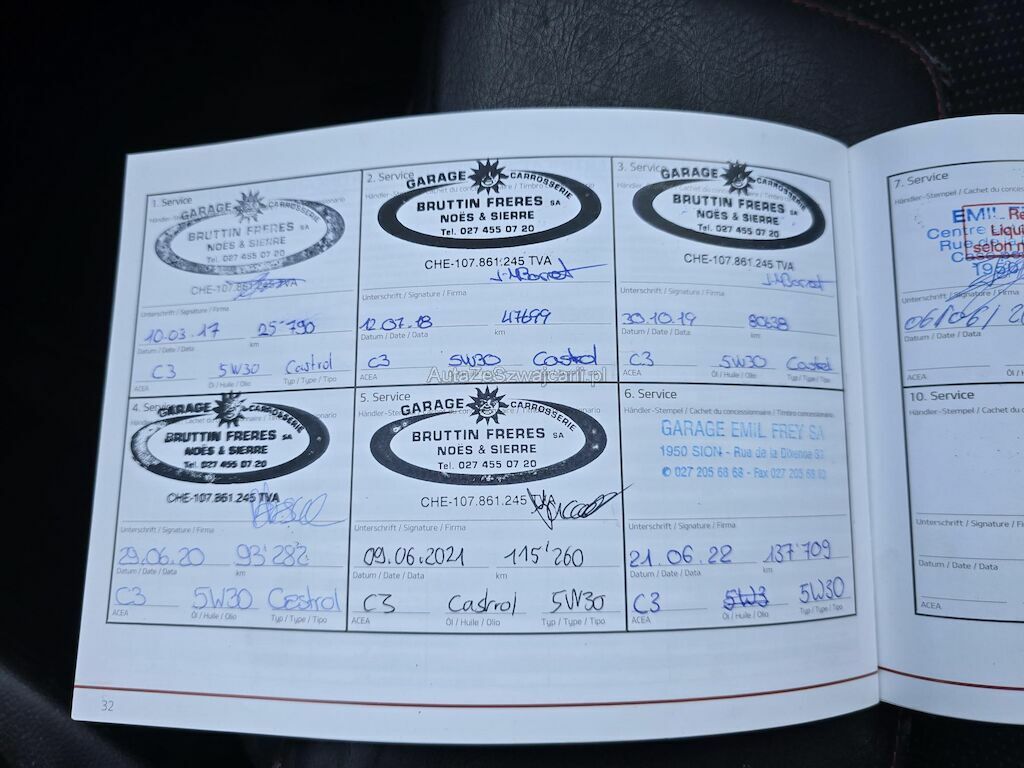 1. Service
GARAGE CARROSSERIE
BRUTTIN FRERES SA
NOËS & SIERRE
Tel. 027 455 07 20
CHE-107.861.245 TVA
Unterschrift / Signature / Firma
10.03.17 25'790
Datum / Date / Data km
C3 5W30 Castrol
ACEA Öl / Huile / Olio Typ / Type / Tipo
2. Service
GARAGE CARROSSERIE
BRUTTIN FRERES SA
NOËS & SIERRE
Tel. 027 455 07 20
CHE-107.861.245 TVA
Unterschrift / Signature / Firma
12.07.18 47699
Datum / Date / Data km
C3 5W30 Castrol
ACEA
3. Service
GARAGE CARROSSERIE
BRUTTIN FRERES SA
NOËS & SIERRE
Tel. 027 455 07 20
CHE-107.861.245 TVA
Unterschrift / Signature / Firma
30.10.19 80638
Datum / Date / Data km
C3 5W30 Castrol
ACEA Öl / Huile / Olio Typ / Type / Tipo
AutaZeSzwajcarii.pl
4. Service
GARAGE CARROSSERIE
BRUTTIN FRERES SA
NOËS & SIERRE
Tel. 027 455 07 20
CHE-107.861.245 TVA
Unterschrift / Signature / Firma
29.06.20 93'282
Datum / Date / Data km
C3 5W30 Castrol
ACEA Öl / Huile / Olio Typ / Type / Tipo
5. Service
GARAGE CARROSSERIE
BRUTTIN FRERES SA
NOËS & SIERRE
Tel. 027 455 07 20
CHE-107.861.245 TVA
Unterschrift / Signature / Firma
09.06.2021 115'260
Datum / Date / Data km
C3 Castrol 5W30
ACEA Öl / Huile / Olio Typ / Type / Tipo
6. Service
Händler-Stempel / Cachet du concessionnaire / Timbro concessionario
GARAGE EMIL FREY SA
1950 SION - Rue de la Dixence 83
© 027 205 68 68 - Fax 027 205 68
Unterschrift / Signature / Firma
21.06.22 137'709
Datum / Date / Data km
C3 5W3 5W30
ACEA Öl / Huile / Olio Typ / Type / Tipo
32
7. Service
Händler-Stempel / Cachet du
EMIL
Centre
Rue
Liqu
selon
Unterschrift / Signature / Firma
06/06/
Datum / Date / Data
ACEA
10. Service
Händler-Stempel / Cachet du
Unterschrift / Signature / Firma
Datum / Date / Data
ACEA